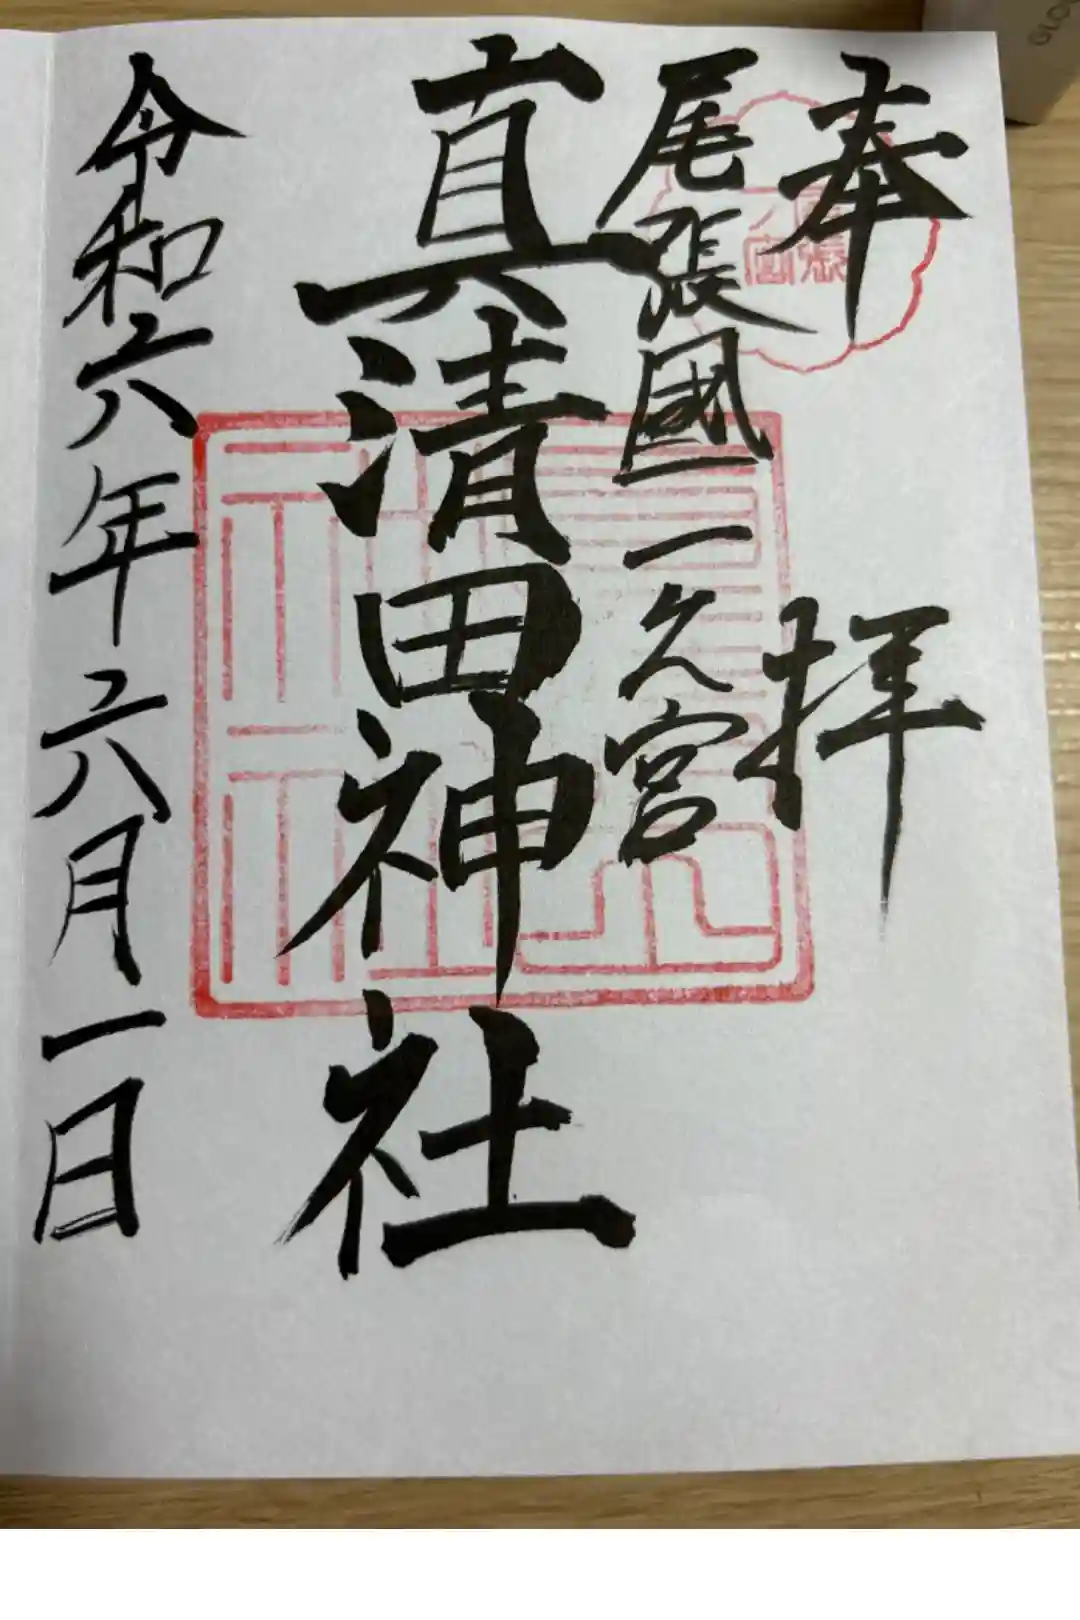 奉拝
尾張國一之宮
真清田神社
令和六年六月一日